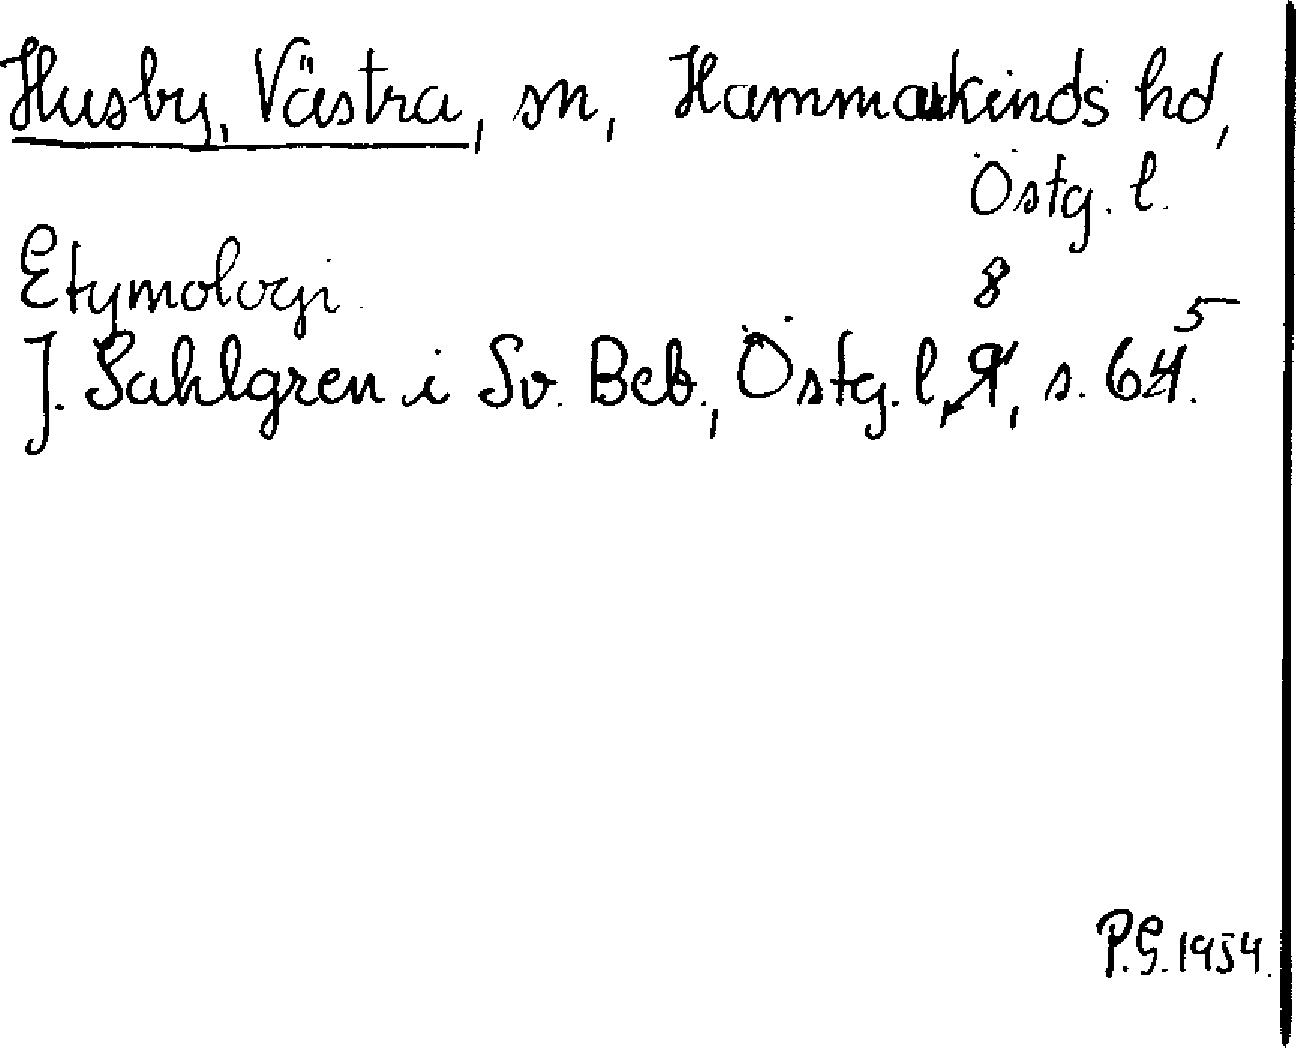 Husby, Västra, sn, Hammarkinds hd,
Östg. l.
Etymologi
8
5
J. Sahlgren i Sv. Beb., Östg. l, 9, s. 64.
P.G. 1954.